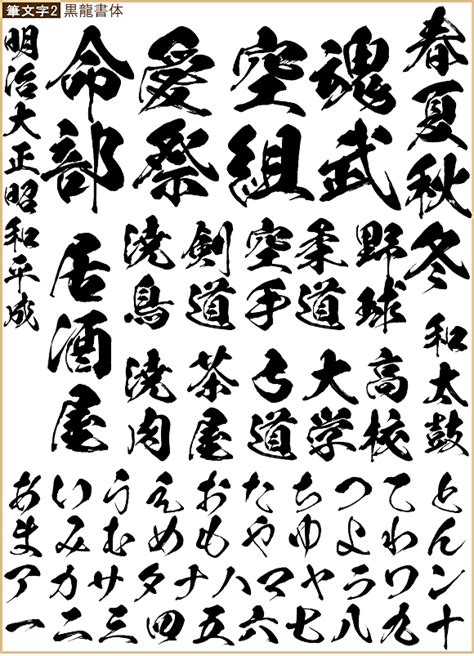 筆文字2 黒龍書体
春夏秋冬
和太鼓
魂武
空組
愛祭
命部
野球
高校
柔道
大学
空手
弓道
剣道
茶屋
焼鳥
焼肉
居酒屋
明治大正昭和平成
あいうえおたちつてと
まみむめもやゆよわん
アカサタナハマヤラワン
一二三四五六七八九十